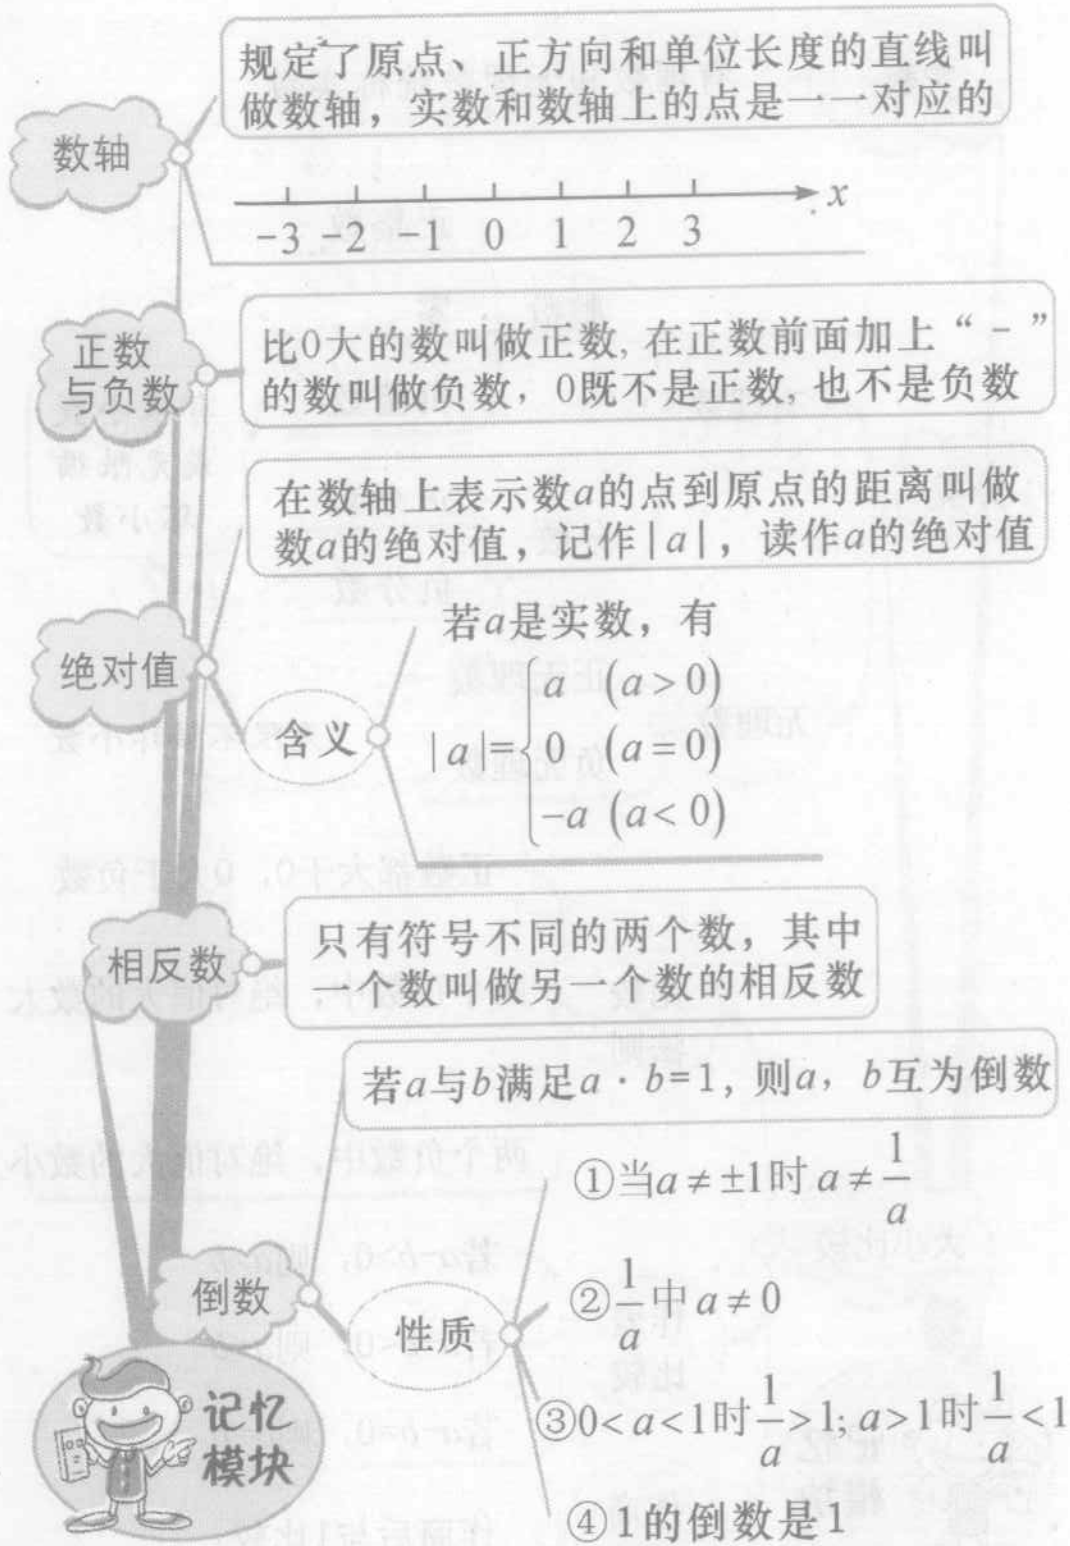 规定了原点、正方向和单位长度的直线叫
做数轴，实数和数轴上的点是一一对应的
数轴
-3 -2 -1 0 1 2 3 x
正数
与负数
比0大的数叫做正数, 在正数前面加上“-”
的数叫做负数，0既不是正数, 也不是负数
在数轴上表示数a的点到原点的距离叫做
数a的绝对值，记作|a|，读作a的绝对值
绝对值
含义
若a是实数，有
|a|={a (a>0)
0 (a=0)
-a (a<0)
相反数
只有符号不同的两个数，其中
一个数叫做另一个数的相反数
若a与b满足a·b=1, 则a，b互为倒数
倒数
性质
①当a≠±1时 a≠1/a
②1/a中 a≠0
③0<a<1时1/a>1; a>1时1/a<1
④1的倒数是1
记忆
模块